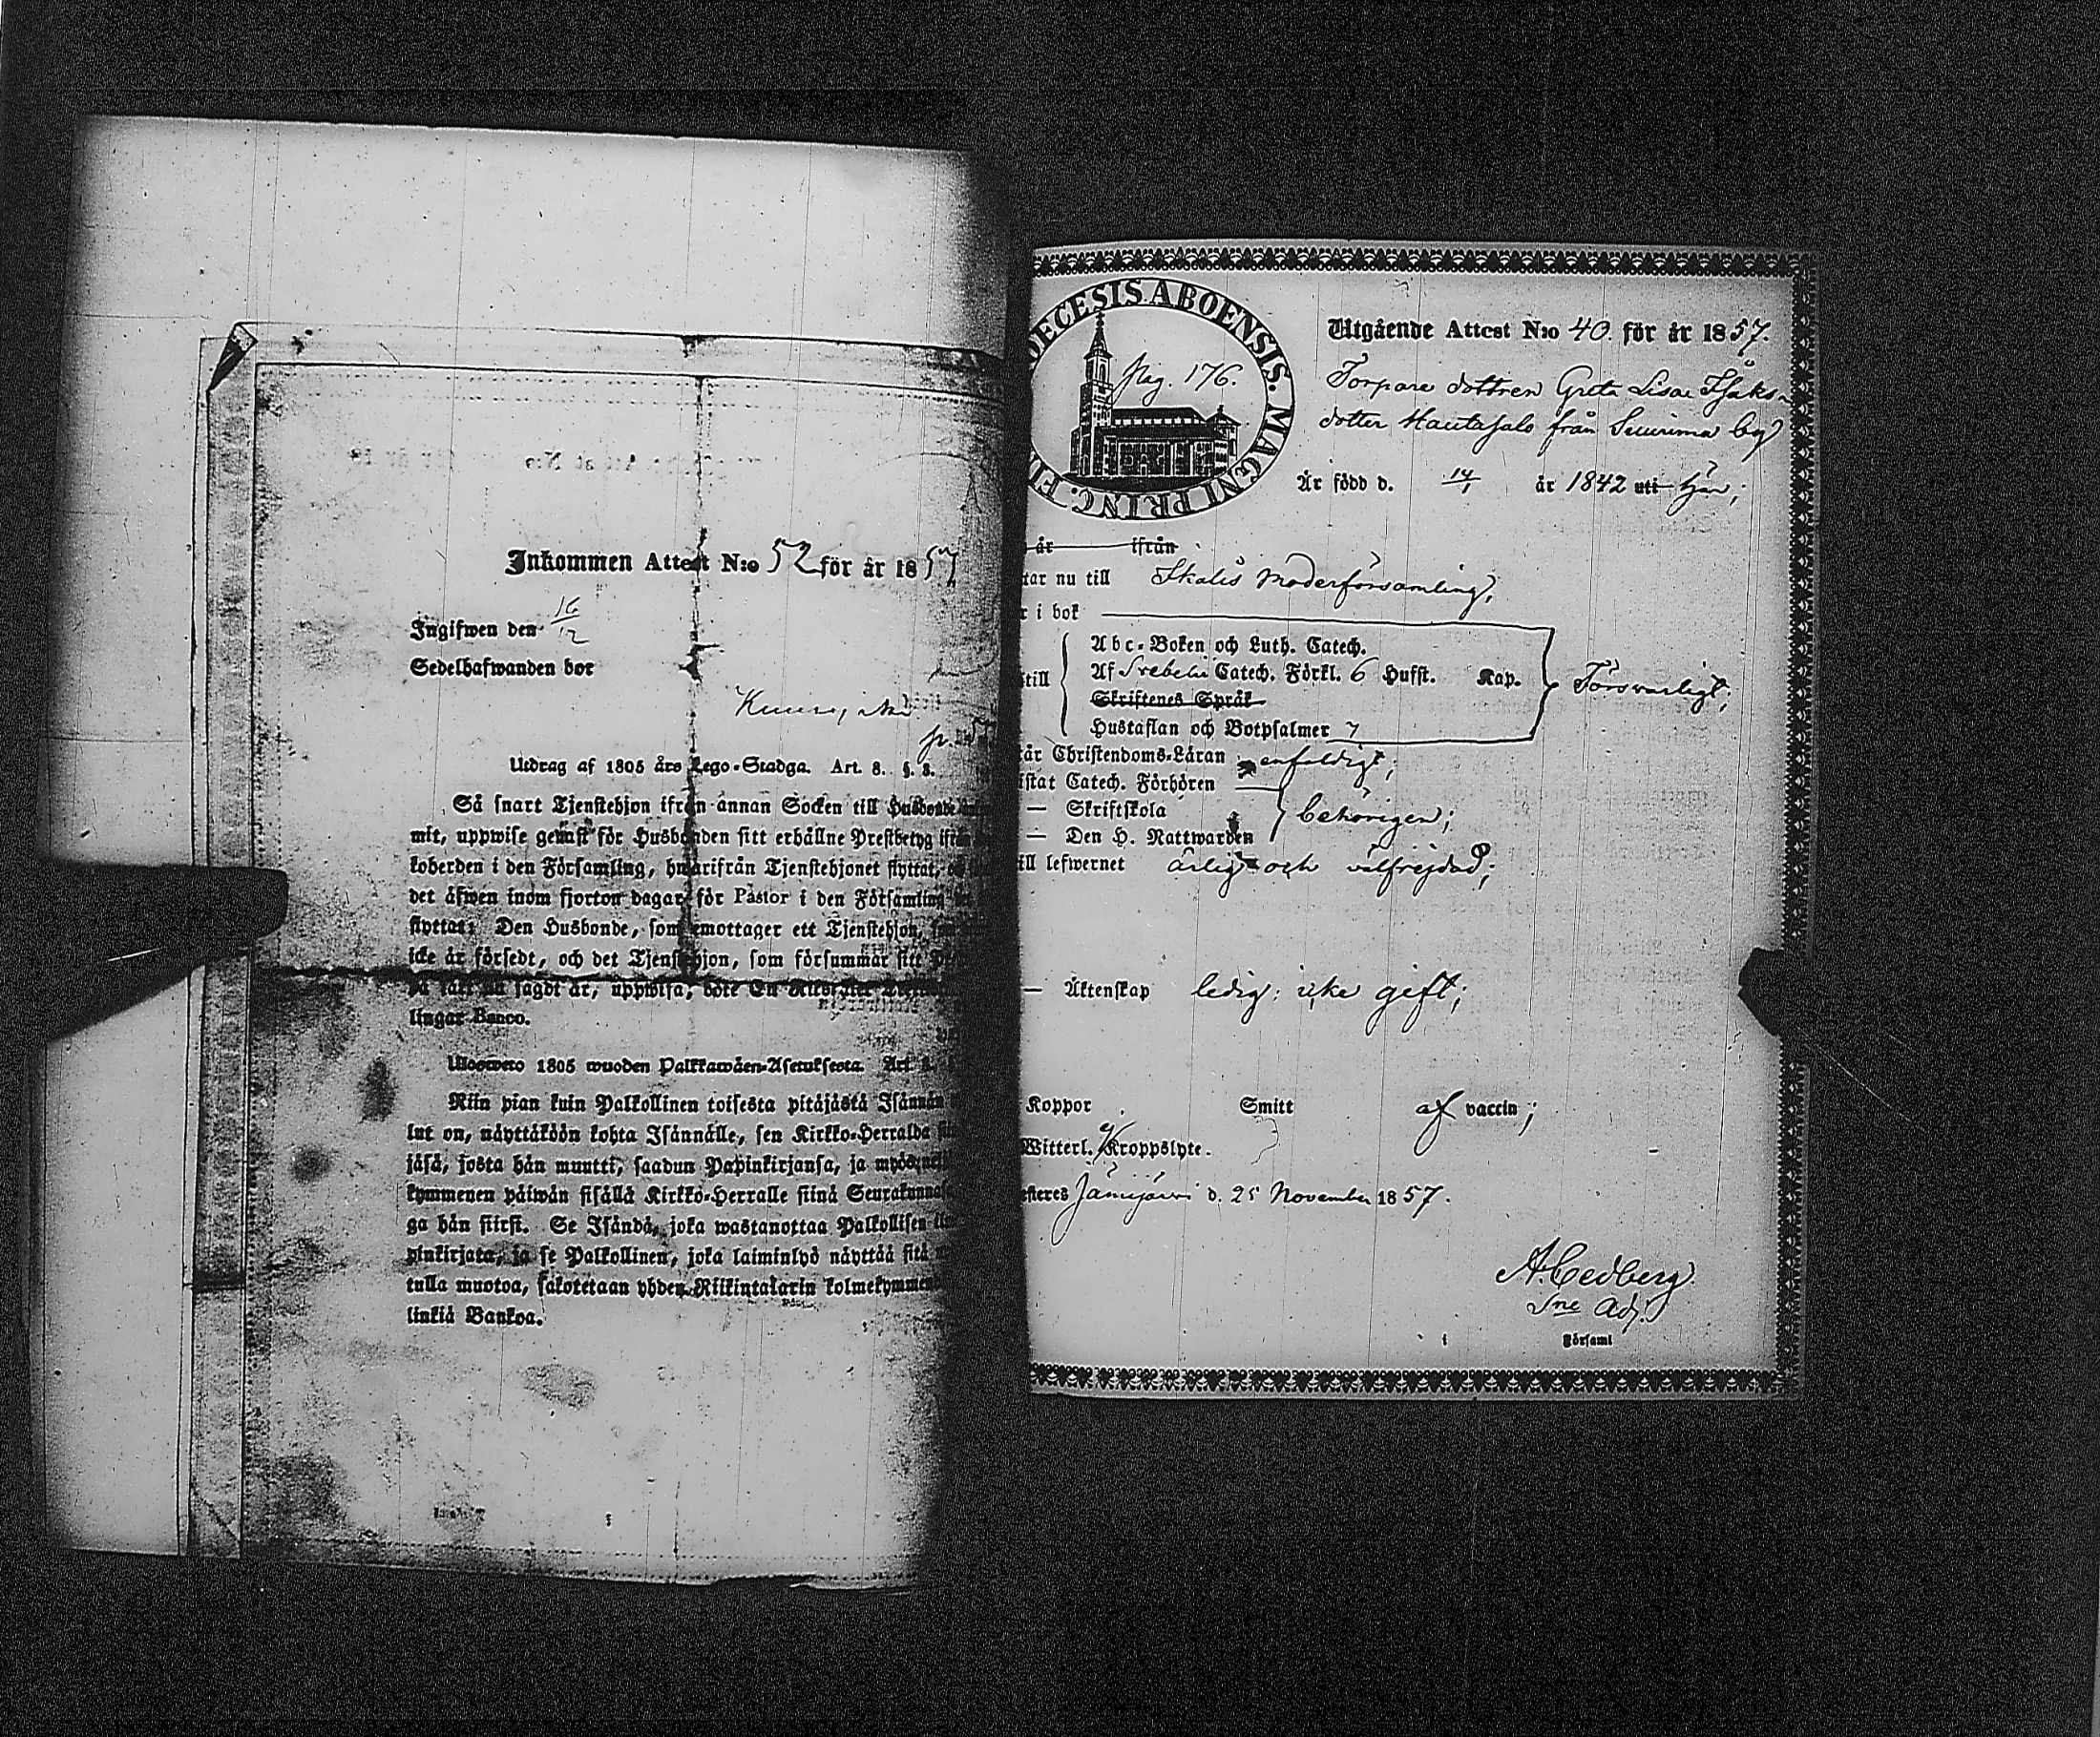 Inkommen Attest N:o 52 för år 1857
Ingifwen den 16/12
Sedelhafwanden bor
Utdrag af 1805 års Lego-Stadga. Art. 8. §. 8.
Så snart Tjenstehjon ifrån annan Socken till Husbonde
mit, uppwise genast för Husbonden sitt erhållne Prestbetyg ifrån
koherden i den Församling, hwarifrån Tjenstehjonet flyttat,
det äfwen inom fjorton dagar för Pastor i den Församling
flyttat: Den Husbonde, som emottager ett Tjenstehjon,
icke är försedt, och det Tjenstehjon, som försummar sitt
sagdt är, uppwisa, böte En
lingar Banco.
Ulosweto 1805 wuoden Palkkawäen-Asetuksesta. Art. 8.
Niin pian kuin Palkollinen toisesta pitäjästä Isännän
lut on, näyttäköön kohta Isännälle, sen Kirkko-Herralda
jäsä, josta hän muutti, saadun Papinkirjansa, ja myös
kymmenen päiwän sisällä Kirkko-Herralle siinä Seurakunnas
ga hän siirsi. Se Isändä, joka wastanottaa Palkollisen
pinkirjata, ja se Palkollinen, joka laiminlyö näyttää sitä
tulla muotoa, sakotetaan yhden Riikintalarin kolmekymmen
linkiä Bankoa.
DECESIS ABOENSIS. MAGNI PRINC. FI
Pag. 176.
Utgående Attest N:o 40. för år 1857.
Torpare dottren Greta Lisa Isaks-
dotter Hautasalo från Suurima by
Är född d. 14/1 år 1842 uti här;
år ifrån
tar nu till Ikalis Moderförsamling;
r i bok
Abc-Boken och Luth. Catech.
till Af Svebelii Catech. Förkl. 6 Hufst. Kap. Försvarligt;
Skriftenes Språk
Hustaflan och Botpsalmer 7
år Christendoms-Läran enfaldigt;
istat Catech. Förhören
— Skriftskola behörigen;
— Den H. Nattwarden
ill lefwernet ärlig och välfrejdad;
— Äktenskap ledig: icke gift;
Koppor Smitt af vaccin;
Witterl. Kroppslyte.
esteres Jämijärvi d. 25 November 1857.
A. Cedberg.
Sne Adj.
i Församl